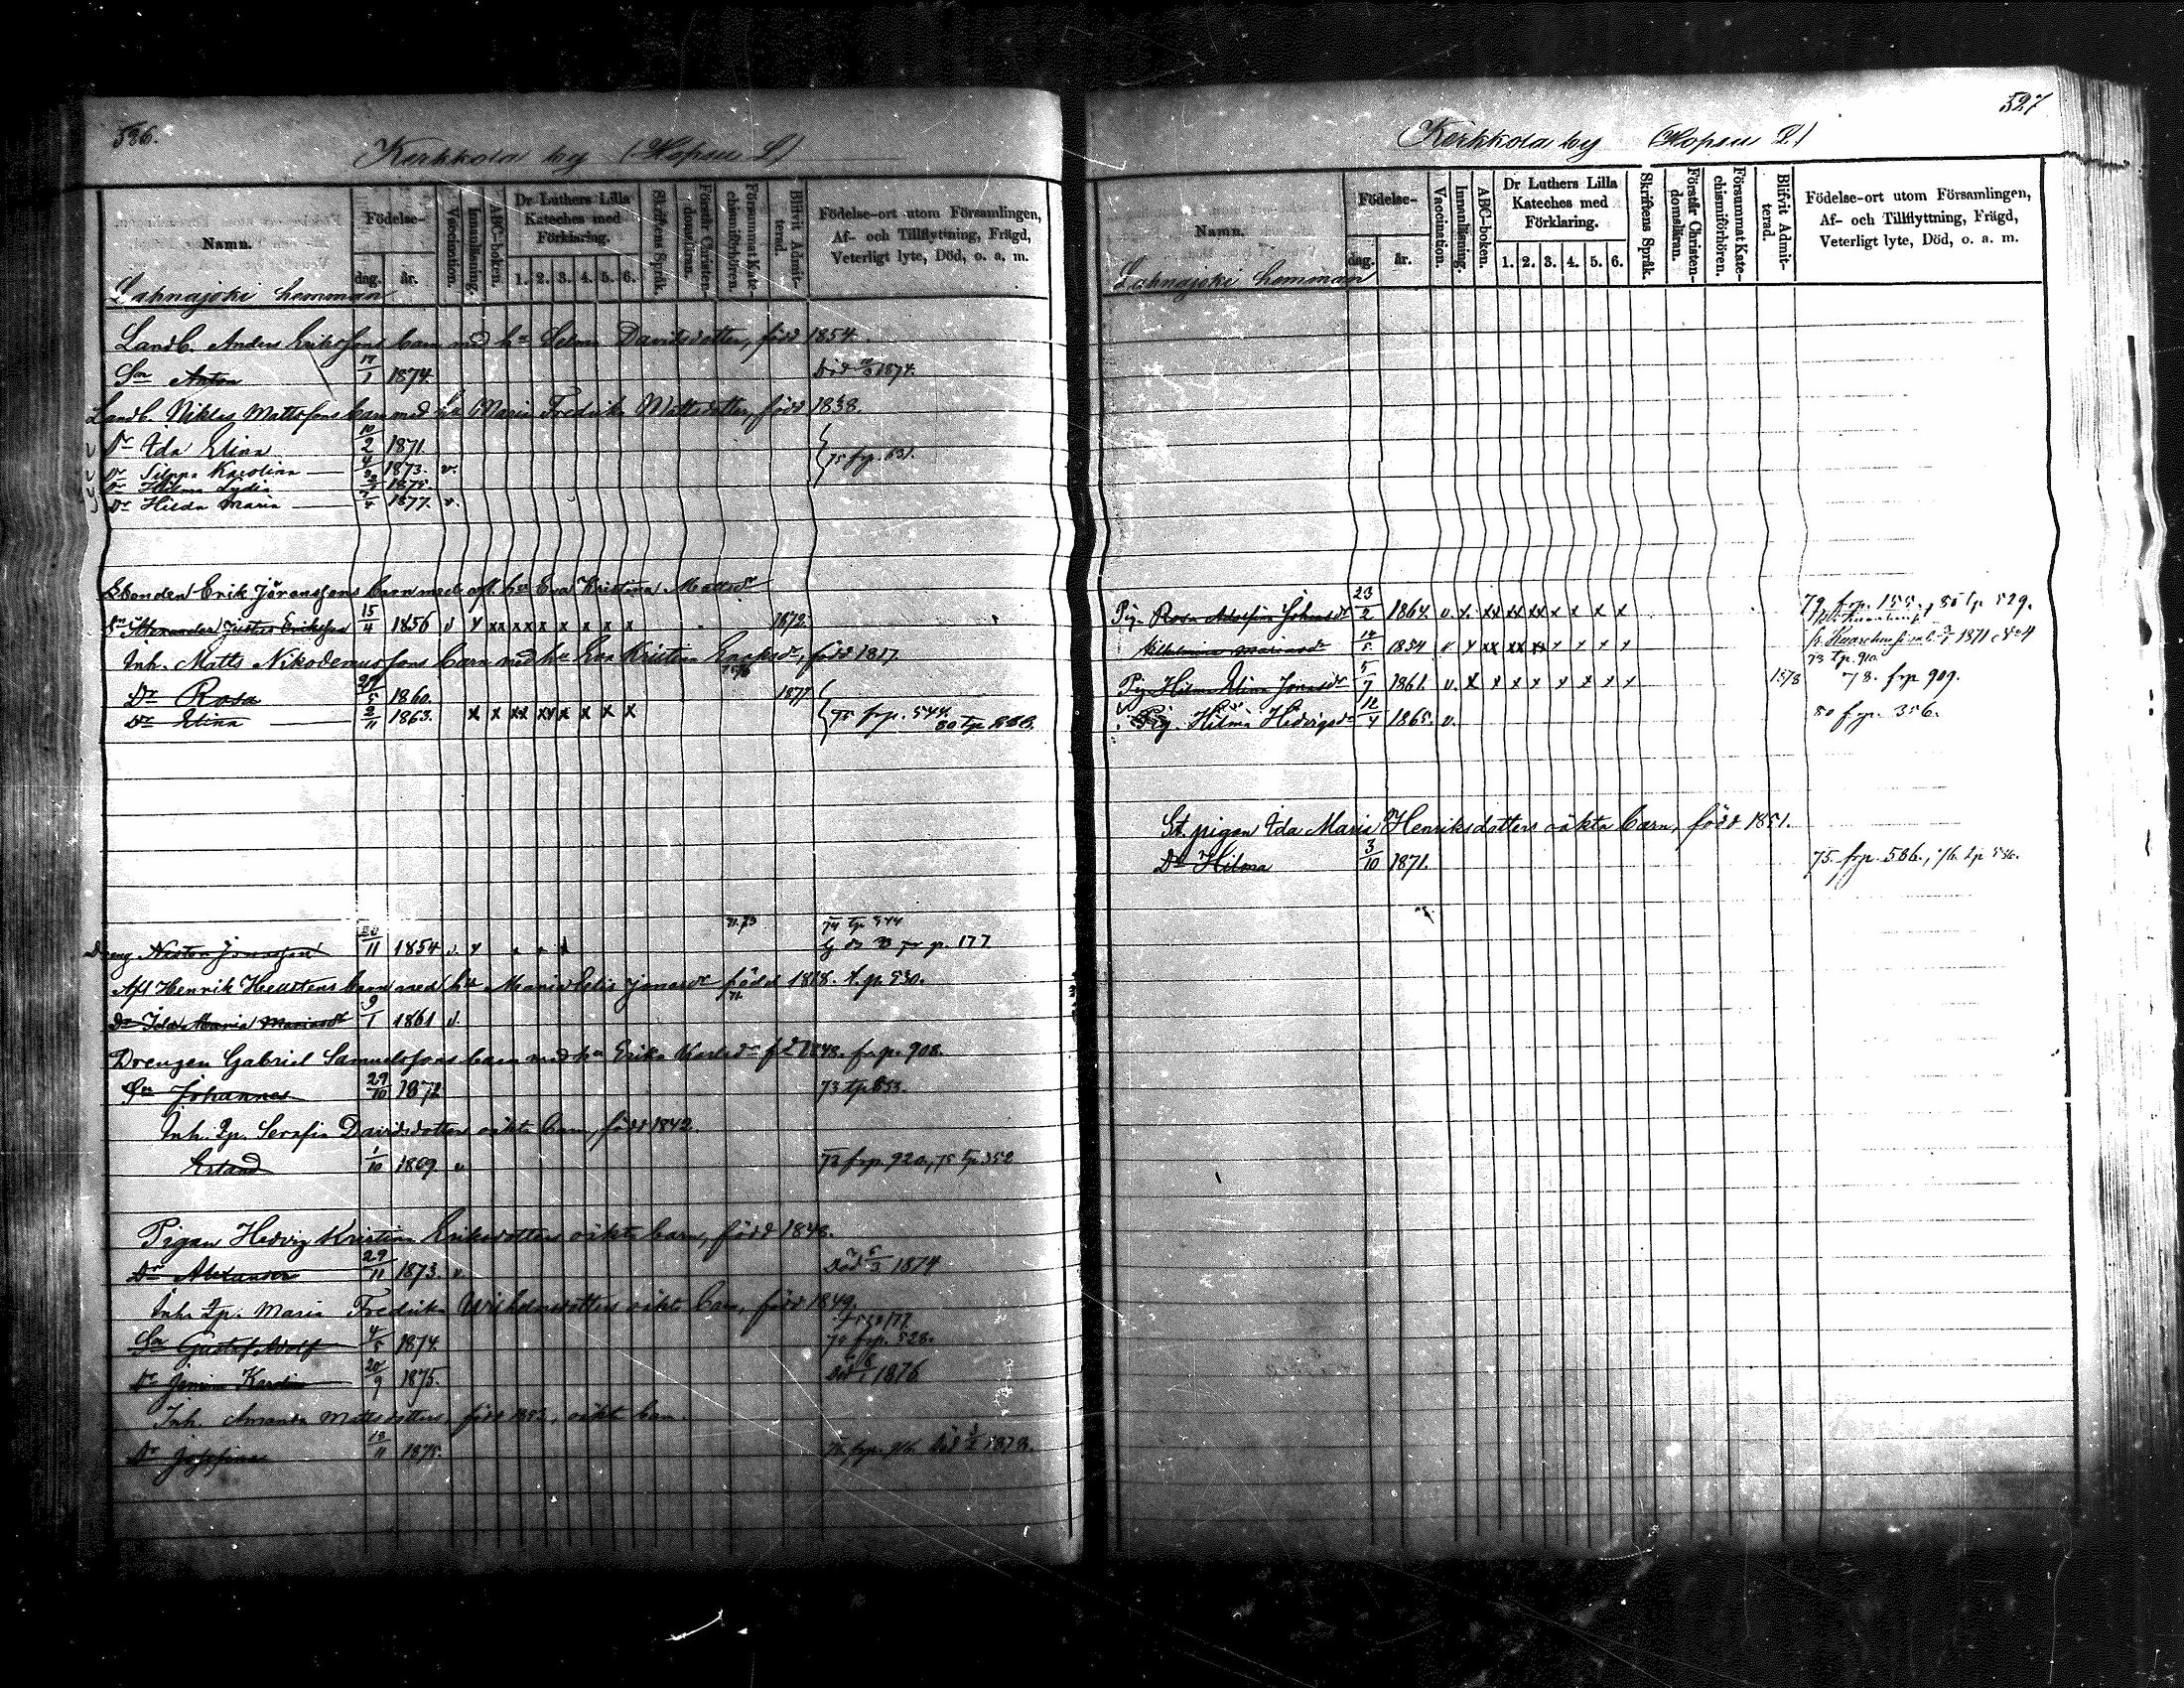 526.
Kerkkola by (Hopsu L)
Namn.
Födelse-
dag.
år.
Vaccination.
Innanläsning.
ABC-boken.
Dr Luthers Lilla Kateches med Förklaring.
1. 2. 3. 4. 5. 6.
Skriftens Språk.
Förstår Christendomsläran.
Försummat Katechismiförhören.
Blifvit Admitterad.
Födelse-ort utom Församlingen,
Af- och Tillflyttning, Frägd,
Veterligt lyte, Död, o. a. m.
Lahnajoki hemman
Landb. Anders Erikssons barn med hu Selma Davidsdotter, född 1854.
Sn Anton 17/1 1874. Död 1874.
Landb. Niklas Mattssons barn med hu Maria Fredrika Mattsdotter, född 1838.
Dr Ida Elina 10/2 1871.
Dr Karolina 1873. v. 75 frp. 631.
Dr Hilma Lydia 1875.
Dr Hilda Maria 1877. v.
Bonden Erik Jöranssons barn med afl. hu Eva Kristina Mattsdr
Sn Alexander Justus Eriksson 15/4 1856 v x xx xx x x x x x 1872.
Inh. Matts Nikodemussons barn med hu Eva Kristina född 1817
Dr Rosa 1860. 1877
Dr Elina 2/11 1863. x x xx xx x x x x 75 frp. 544.
Dreng Nestor Jonasson 20/11 1854 v. x 74 tp 544
fr p. 177
Afl Henrik Hellstens barn med hu Maria Jonasdr född 1818. t.p. 530.
Dr Ida Maria Mariasdr 9/1 1861 v.
Drengen Gabriel Samuelssons barn med hu Erika Karlsdr f. 1848. fr p. 908.
Sn Johannes 29/10 1872 73 tp 853.
Inh. Qp. Serafia Davidsdotters oäkta barn, född 1842.
Erland 1/10 1869 v 72 frp. 920, 75 tp. 352
Pigan Hedvig Kristina Eriksdotters oäkta barn, född 1848.
Dr Alexandra 29/11 1873. v. Död 5/3 1874
Inh. Qp. Maria Fredrika Wilhelmsdotters oäkta barn, född 1849.
Sn Gustaf Adolf 4/5 1874. frp. 528.
Dr Karolina 20/9 1875. Död 1876
Inh. Amanda Mattsdotters, född 1852, oäkta barn.
Dr Josefina 13/11 1875. Död 1878.
527
Kerkkola by (Hopsu L)
Namn.
Födelse-
dag.
år.
Vaccination.
Innanläsning.
ABC-boken.
Dr Luthers Lilla Kateches med Förklaring.
1. 2. 3. 4. 5. 6.
Skriftens Språk.
Förstår Christendomsläran.
Försummat Katechismiförhören.
Blifvit Admitterad.
Födelse-ort utom Församlingen,
Af- och Tillflyttning, Frägd,
Veterligt lyte, Död, o. a. m.
Lahnajoki hemman
Pig. Rosa Adolfina Johansdr 23/2 1864. v. x. xx xx xx x x x x 79 frp. 155., 80 tp 529.
Wilhelmina Mariasdr 1854 v x xx xx xx x x x x 1871 No 4
73 tp. 910
Pig Hilma Elina Jonasdr 5/7 1861. v. x x x x x x x x 1878 78. frp 909.
Pig. Hilma Hedvigsdr 12/4 1865. v. 80 frp. 356.
St. pigan Ida Maria Henriksdotters oäkta barn, född 1851.
Dr Hilma 3/10 1871. 75 frp. 536.